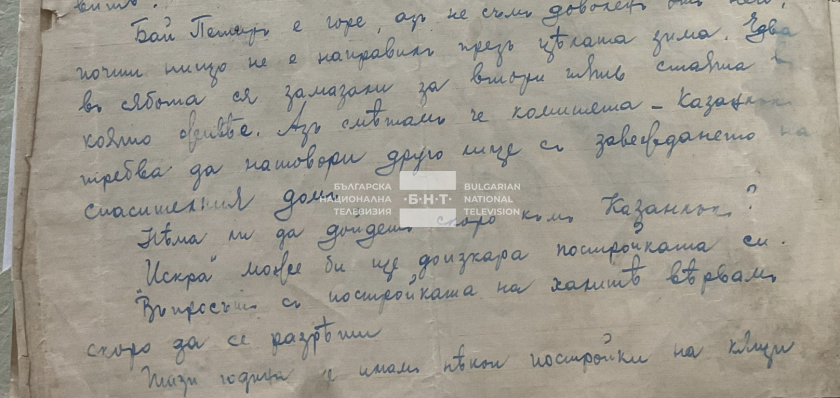 Бай Петъръ е горе, азъ не съмъ доволенъ отъ него,
почти нищо не е направилъ презъ цѣлата зима. Едва
въ сѫбота ся замазали за втори пѫть стаята въ
която живѣе. Азъ смѣтамъ че комитета – Казанлъкъ
трѣбва да натовари друго лице съ завеждането на
спасителния домъ
БЪЛГАРСКА НАЦИОНАЛНА ТЕЛЕВИЗИЯ
БНТ
BULGARIAN NATIONAL TELEVISION
Нѣма ли да дойдешъ скоро къмъ Казанлъкъ?
"Искра" може би ще доизкара постройката си.
Въпросътъ съ постройката на халитѣ вѣрвамъ
скоро да се разрѣши
Тази година е имамъ нѣкои постройки на